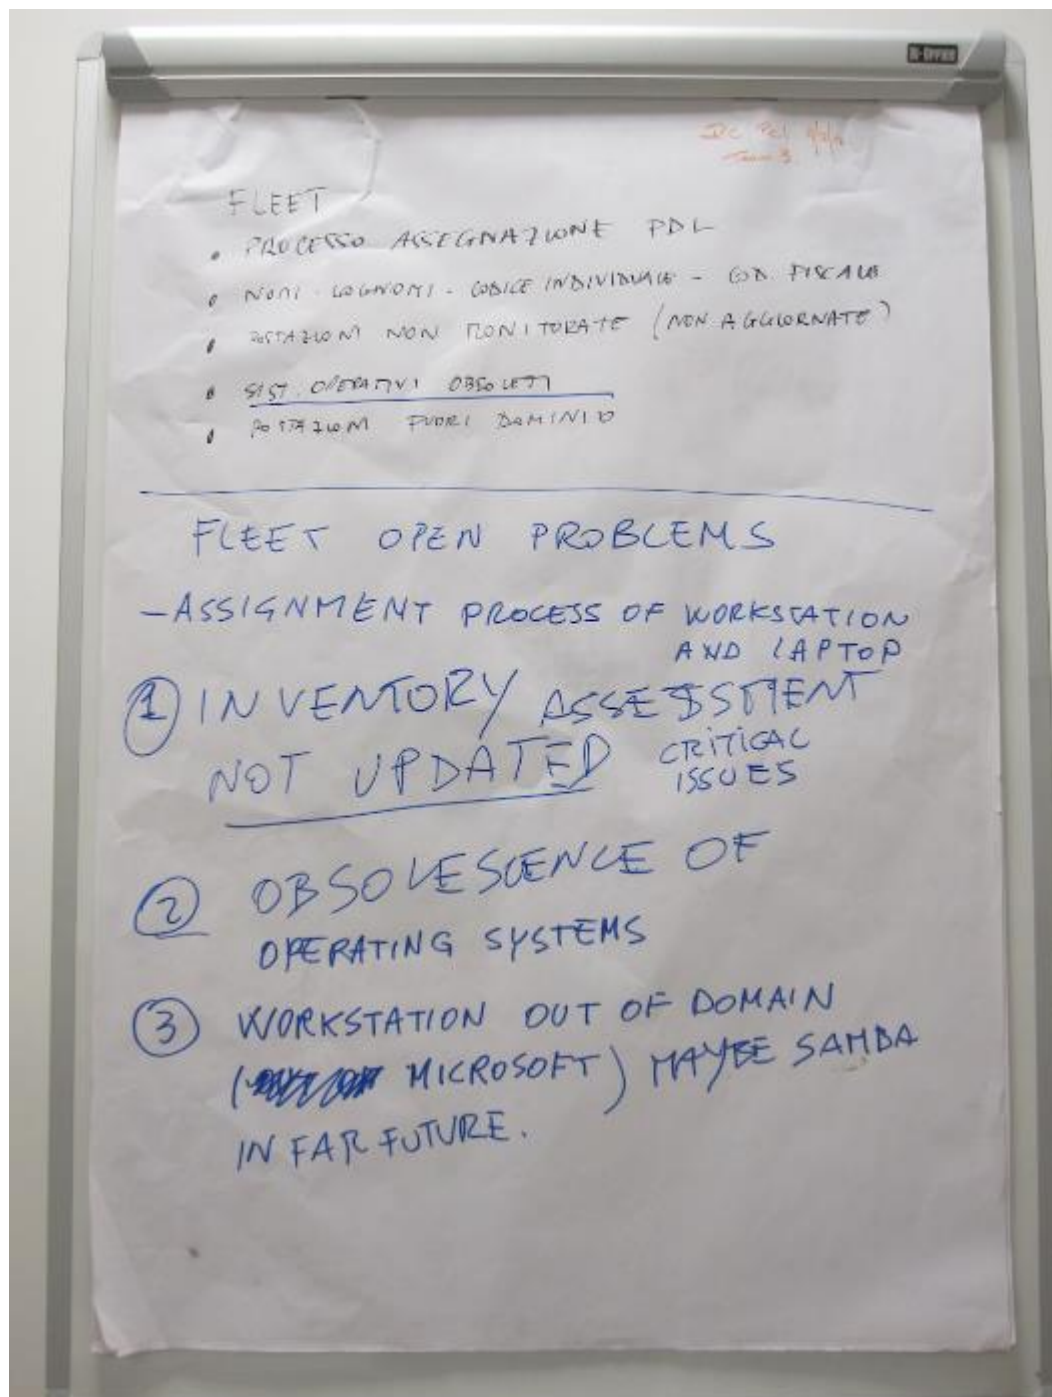 FLEET
• PROCESSO ASSEGNAZIONE PDL
• NOMI - COGNOMI - CODICE INDIVIDUALE - COD. FISCALE
• POSTAZIONI NON MONITORATE (NON AGGIORNATE)
• SIST. OPERATIVI OBSOLETI
• POSTAZIONI FUORI DOMINIO
FLEET OPEN PROBLEMS
- ASSIGNMENT PROCESS OF WORKSTATION
AND LAPTOP
1 INVENTORY ASSESSMENT
NOT UPDATED CRITICAL
ISSUES
2 OBSOLESCENCE OF
OPERATING SYSTEMS
3 WORKSTATION OUT OF DOMAIN
( MICROSOFT) MAYBE SAMBA
IN FAR FUTURE.